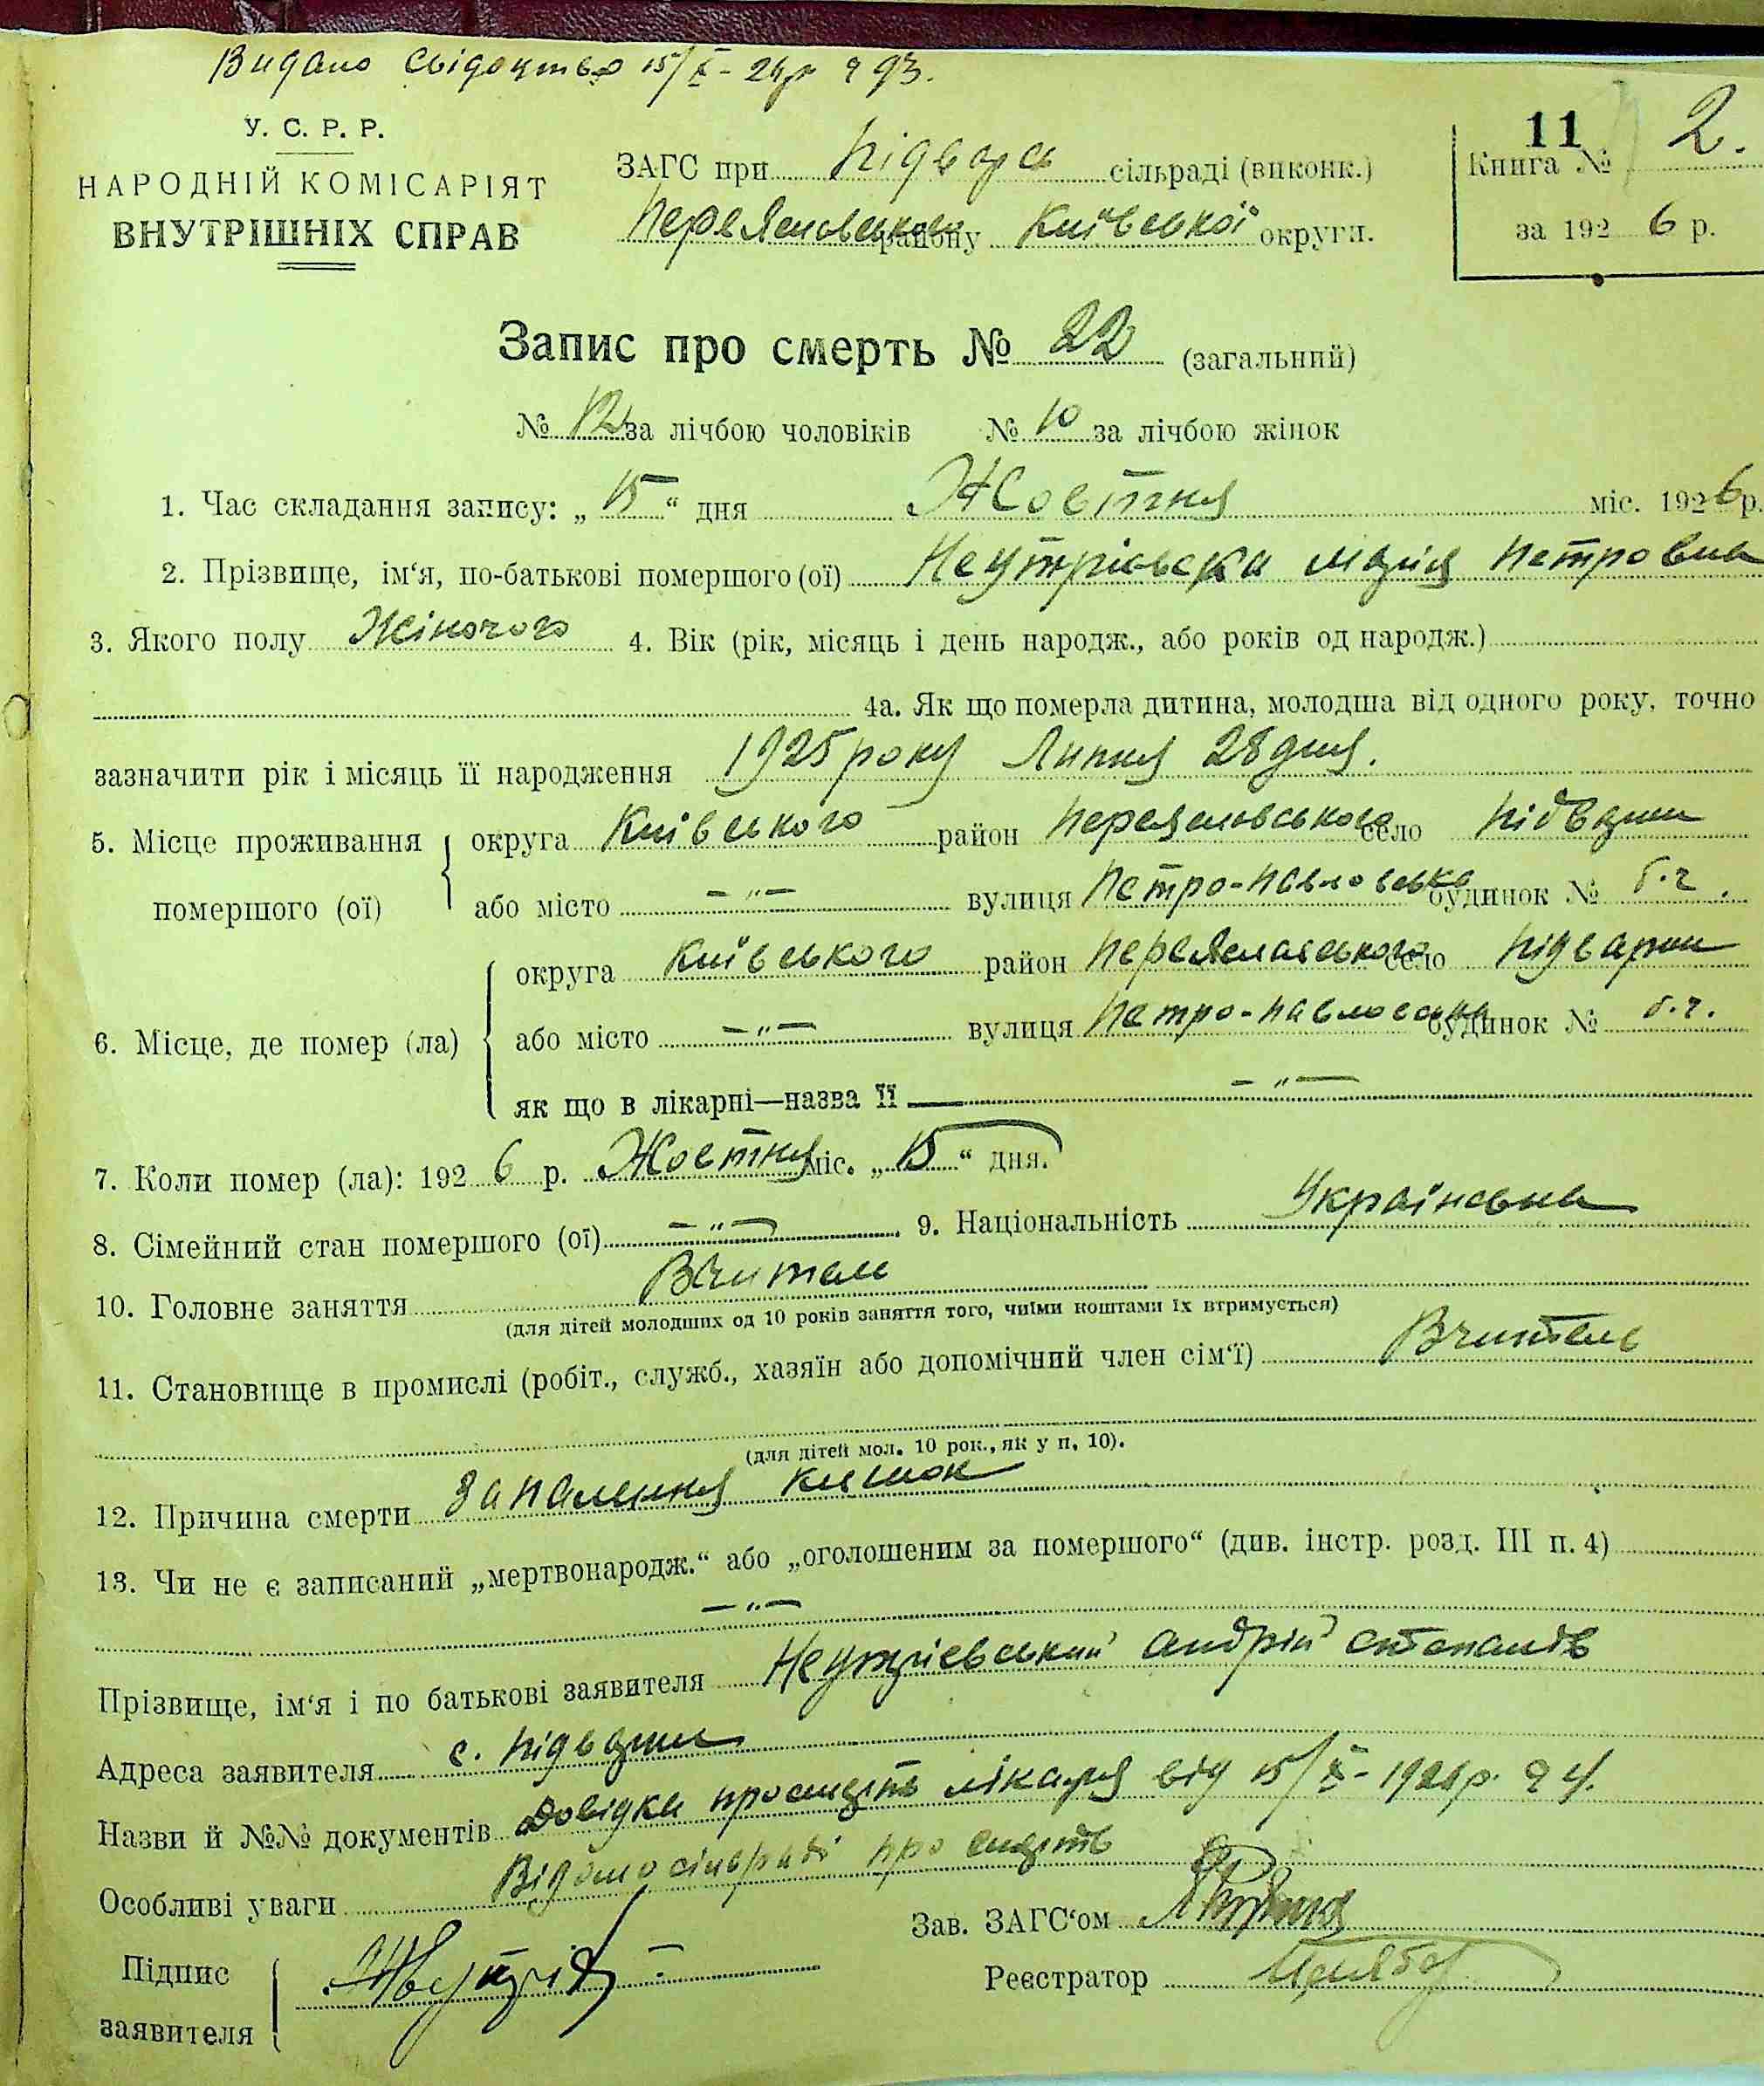 Видано Свідоцтво 15/X - 26р № 93.
У. С. Р. Р.
НАРОДНІЙ КОМІСАРІЯТ
ВНУТРІШНІХ СПРАВ
ЗАГС при Підварс сільраді (виконк.)
Переяславського району Київської округи.
11 2.
Книга №
за 1926 р.
Запис про смерть № 22 (загальний)
№ 12 за лічбою чоловіків № 10 за лічбою жінок
1. Час складання запису: „15“ дня Жовтня міс. 1926 р.
2. Прізвище, ім‘я, по-батькові помершого (ої) Марія Петровна
3. Якого полу Жіночого 4. Вік (рік, місяць і день народж., або років од народж.)
4а. Як що померла дитина, молодша від одного року, точно
зазначити рік і місяць її народження 1925 року Липня 28 дня.
5. Місце проживання помершого (ої) округа Київського район Переяславського село Підварки
або місто — „ — вулиця Петро-Павловська будинок № б.ч.
6. Місце, де помер (ла) округа Київського район Переяславського село Підварки
або місто — „ — вулиця Петро-Павловська будинок № б.ч.
як що в лікарні—назва її — „ —
7. Коли помер (ла): 1926 р. Жовтня міс. „15“ дня.
8. Сімейний стан помершого (ої) — „ — 9. Національність Українська
10. Головне заняття Вчитель
(для дітей молодших од 10 років заняття того, чиїми коштами їх втримується)
11. Становище в промислі (робіт., служб., хазяїн або допомічний член сім‘ї) Вчитель
(для дітей мол. 10 рок., як у п. 10).
12. Причина смерти Запалення кишок
13. Чи не є записаний „мертвонародж.“ або „оголошеним за помершого“ (див. інстр. розд. III п. 4)
— „ —
Прізвище, ім‘я і по батькові заявителя Андрій Степанів
Адреса заявителя с. Підварки
Назви й №№ документів Довідка про смерть лікаря від 15/X - 1926 р. № 4.
Особливі уваги Відомо сільраді про смерть
Зав. ЗАГС‘ом
Підпис
заявителя
Реєстратор